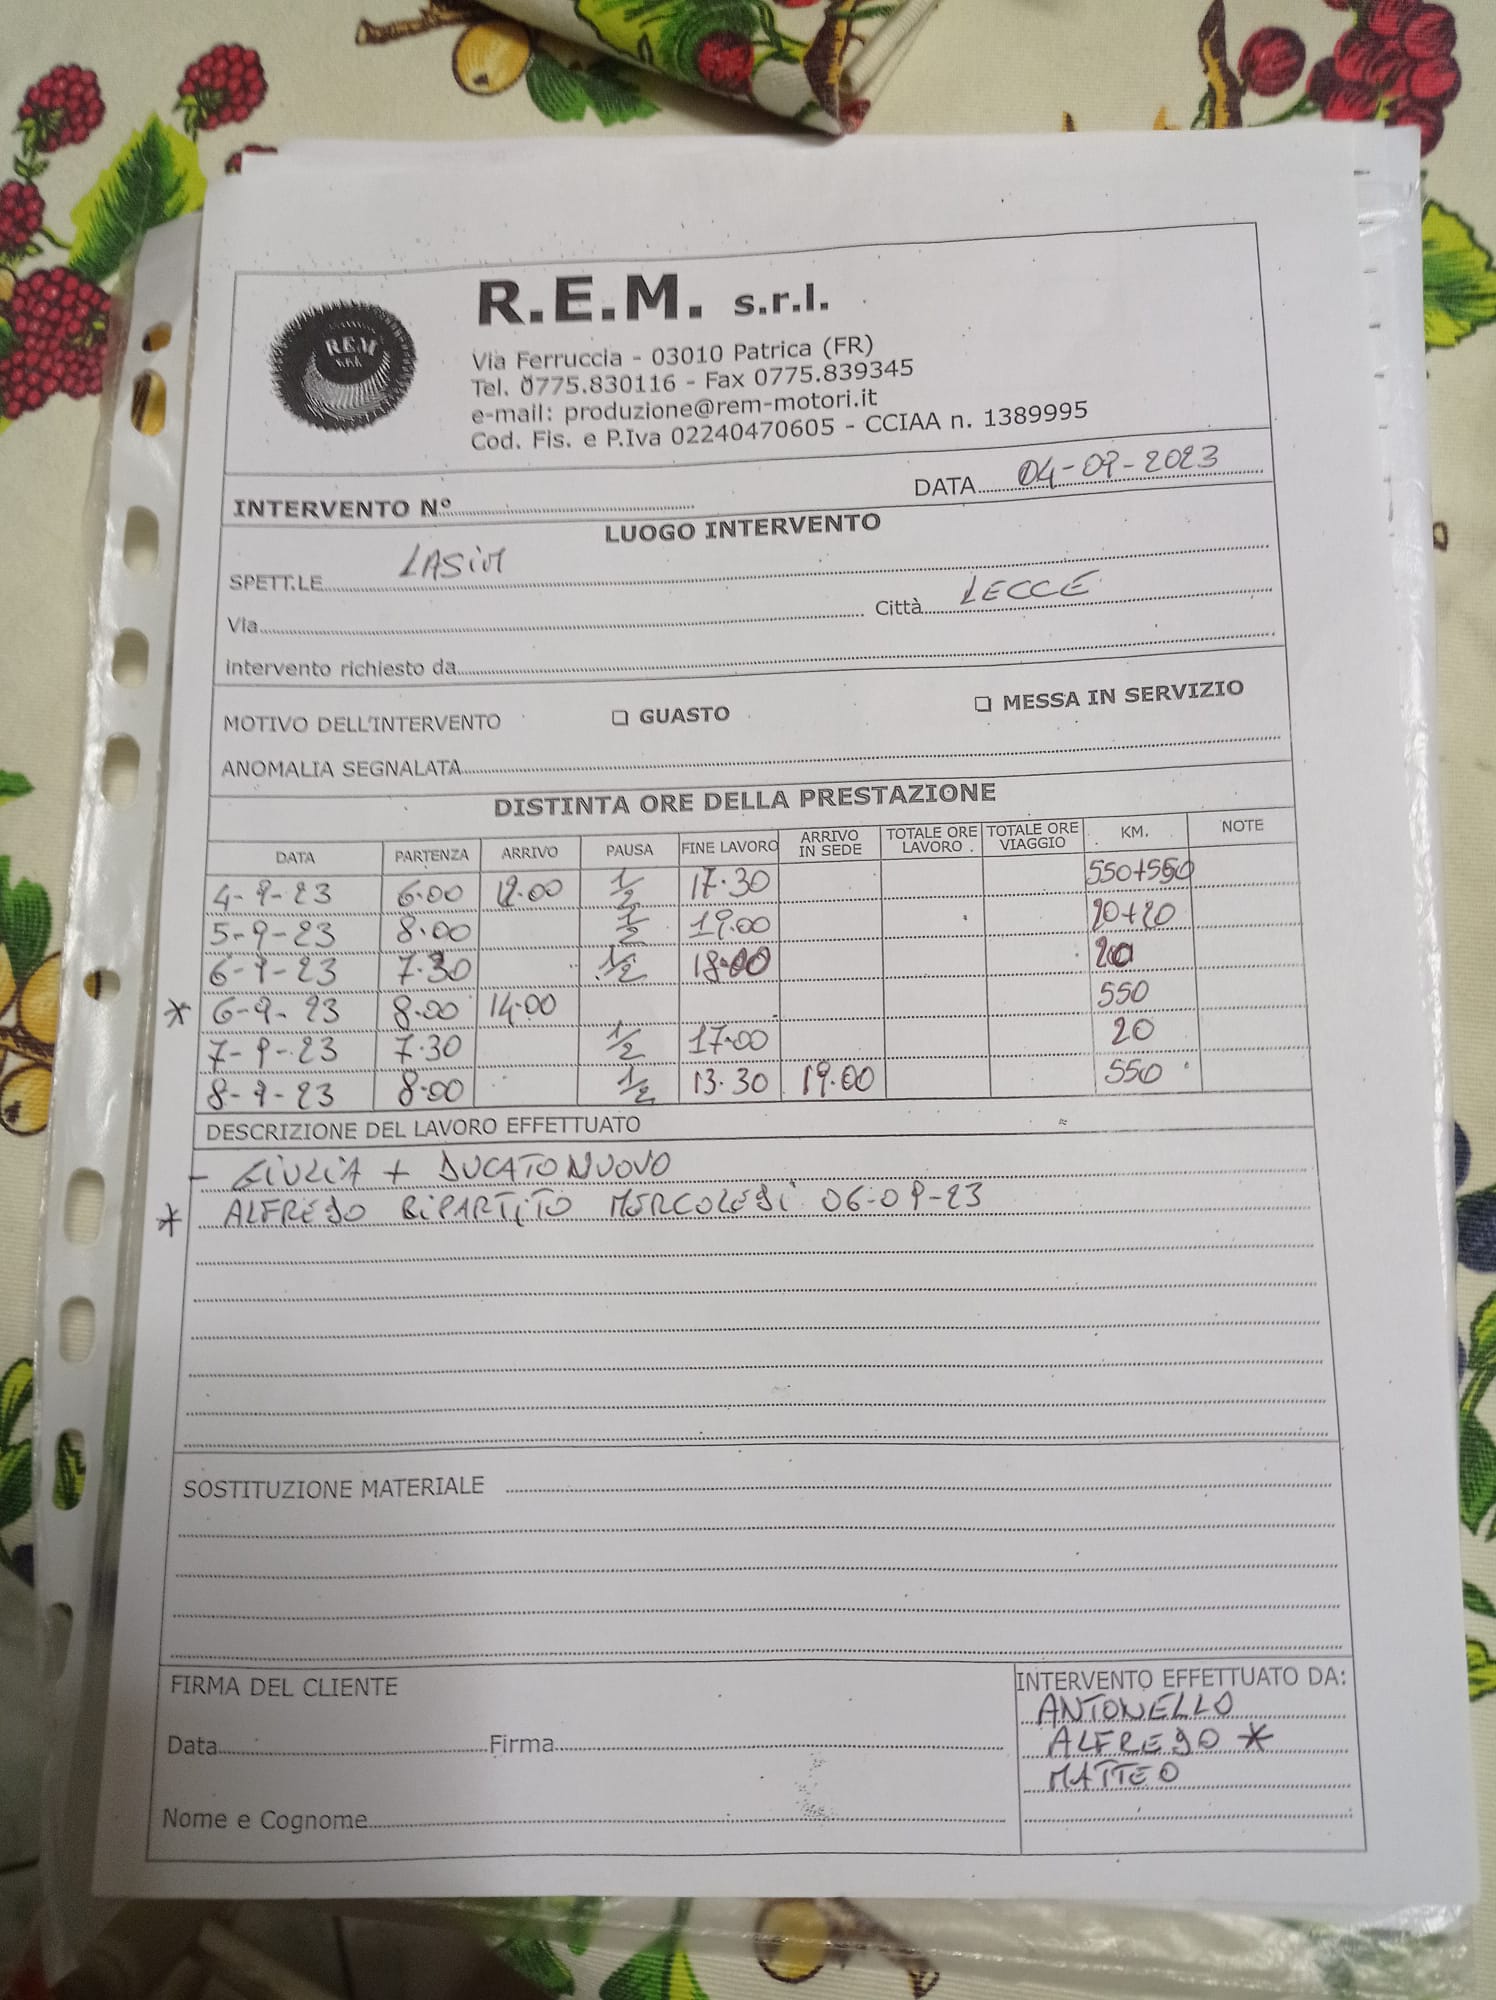 R.E.M. s.r.l.
R.E.M
s.r.l.
Via Ferruccia - 03010 Patrica (FR)
Tel. 0775.830116 - Fax 0775.839345
e-mail: produzione@rem-motori.it
Cod. Fis. e P.Iva 02240470605 - CCIAA n. 1389995
INTERVENTO N° DATA 04-09-2023
LUOGO INTERVENTO
SPETT.LE LASIM
Via Città LECCE
intervento richiesto da
MOTIVO DELL'INTERVENTO ❏ GUASTO ❏ MESSA IN SERVIZIO
ANOMALIA SEGNALATA
DISTINTA ORE DELLA PRESTAZIONE
DATA PARTENZA ARRIVO PAUSA FINE LAVORO ARRIVO IN SEDE TOTALE ORE LAVORO TOTALE ORE VIAGGIO KM. NOTE
4-9-23 6.00 12.00 1/2 17.30 550+550
5-9-23 8.00 1/2 19.00 20+20
6-9-23 7.30 1/2 18.00 20
* 6-9-23 8.00 14.00 550
7-9-23 7.30 1/2 17.00 20
8-9-23 8.00 1/2 13.30 19.00 550
DESCRIZIONE DEL LAVORO EFFETTUATO
- GIULIA + DUCATO NUOVO
* ALFREDO RIPARTITO MERCOLEDI 06-09-23
SOSTITUZIONE MATERIALE
FIRMA DEL CLIENTE
INTERVENTO EFFETTUATO DA:
ANTONELLO
ALFREDO *
MATTEO
Data Firma
Nome e Cognome